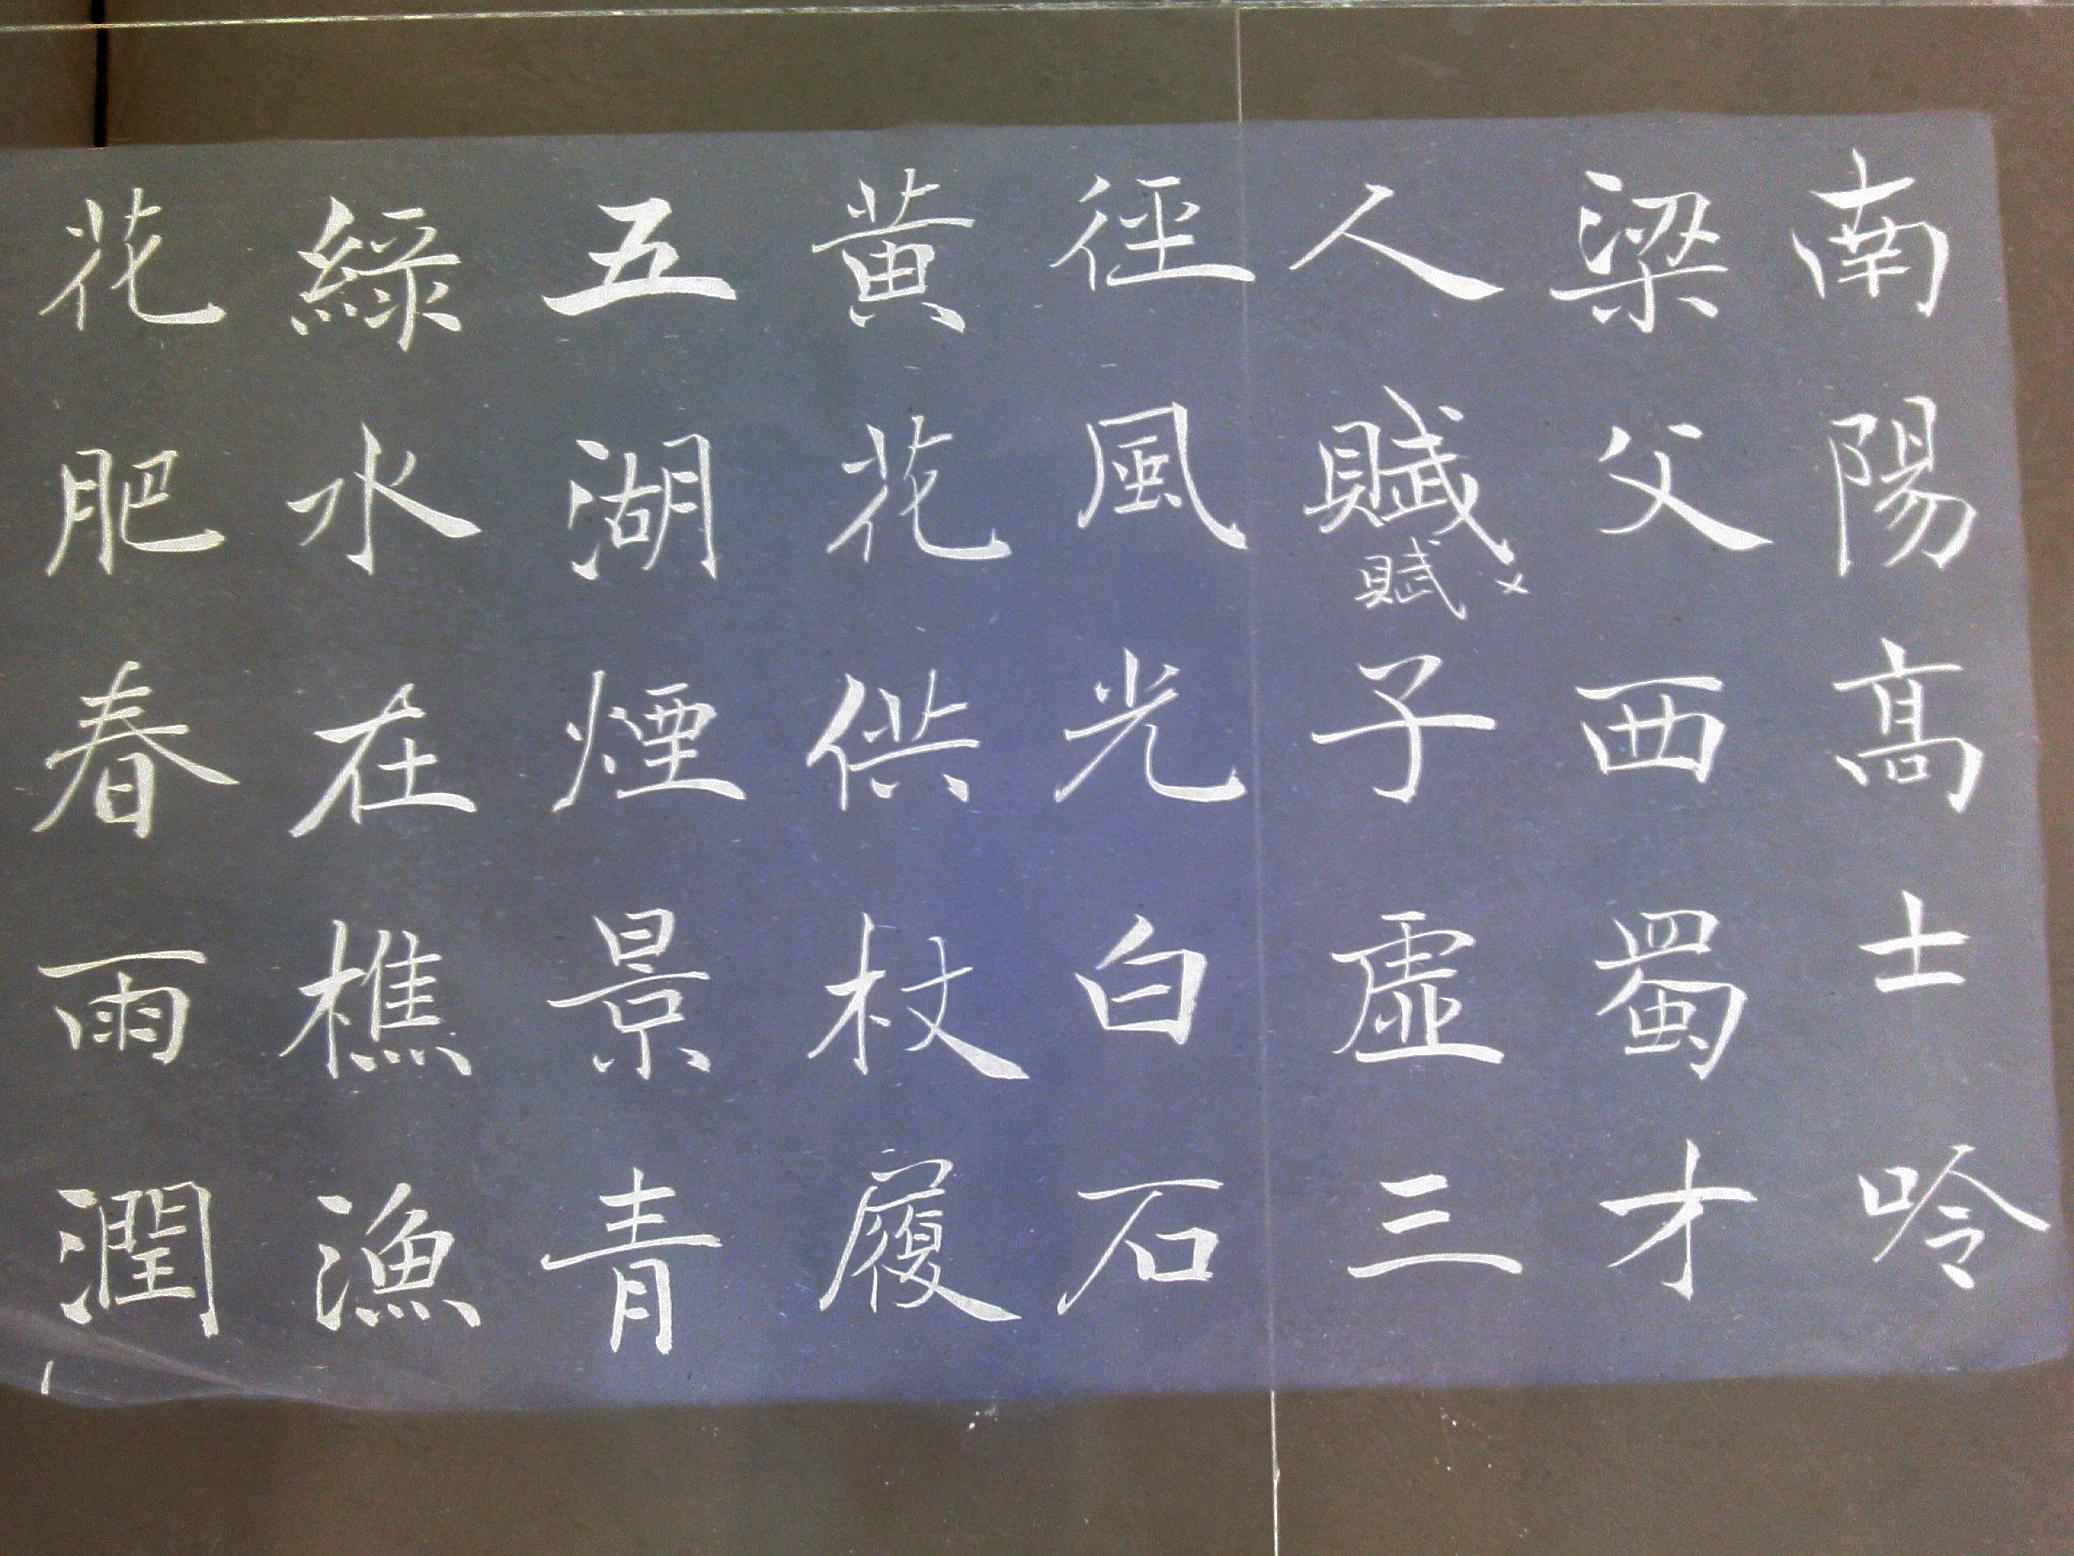 南陽高士吟
梁父西蜀才
人賦賦子虛三
徑風光白石
黃花供杖履
五湖煙景青
綠水在樵漁
花肥春雨潤